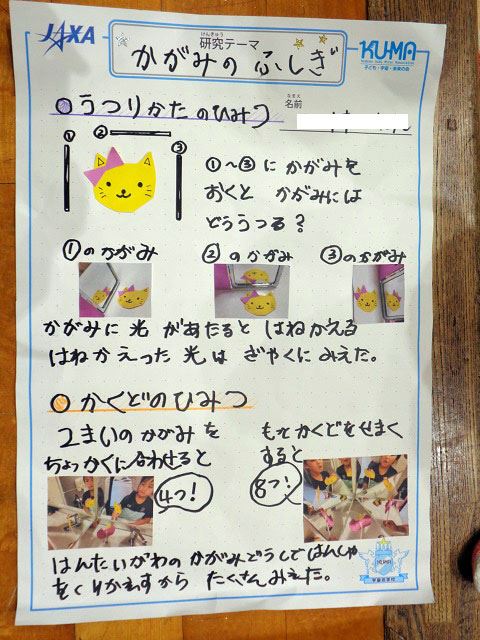 JAXA
けんきゅう
研究テーマ
かがみのふしぎ
KUMA
子ども・宇宙・未来の会
うつりかたのひみつ
なまえ
名前
① ② ③
①〜③に かがみを
おくと かがみには
どううつる?
①のかがみ ②のかがみ ③のかがみ
かがみに 光 があたると はねかえる
はねかえった 光は ぎゃくに みえた。
かくどのひみつ
2まいのかがみを
ちょっかくに合わせると
4つ!
もっとかくどをせまく
すると
8つ!
はんたいがわの かがみどうしではんしゃ
をくりかえすから たくさんみえた。
KUMA
宇宙の学校